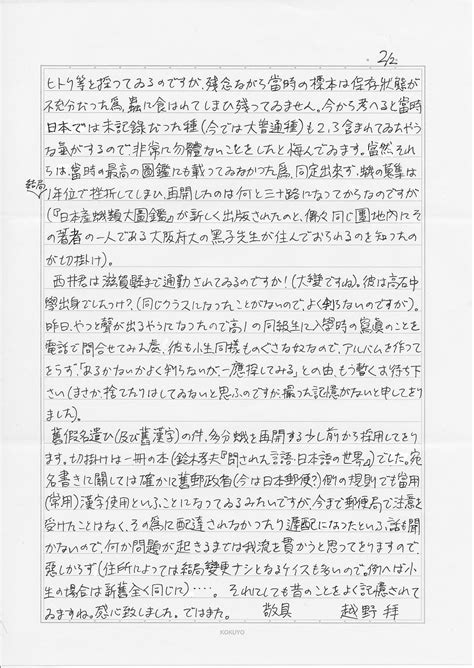 2/2.
ヒトリ等を採つてゐるのですが、残念ながら當時の標本は保存狀態が
不充分だつた為、蟲に食はれてしまひ残つてゐません。今から考へると當時
日本では未記録だつた種(今では大普通種)も2,3含まれてゐたやう
な氣がするので、非常に勿體ないことをしたと悔んでゐます。當然、それ
らは、當時の最高の圖鑑にも載つてゐなかつた為、同定出來ず、蛾の蒐集は
結局
1年位で挫折してしまひ、再開したのは何と三十路になつてからなのですが
(『日本産蛾類大圖鑑』が新しく出版されたのと、偶々同じ團地内にそ
の著者の一人である大阪府大の黒子先生が住んでおられるのを知つたの
が切掛け)。
西井君は滋賀縣まで通勤されてゐるのですか!(大變ですね)。彼は高石中
學出身でしたつけ?(同じクラスになつたことがないので、よく判らないのですが)。
昨日、やつと聲が出るやうになつたので高1の同級生に入學時の寫眞のことを
電話で問合せてみた處、彼も小生同様ものぐさな奴なので、アルバムを作つて
をらず、「あるかないかよく判らないが、一應探してみる」との由、もう暫くお待ち下
さい(まさか、捨てたりはしてゐないと思ふのですが、撮つた記憶がないと申してを
りました)。
舊假名遣ひ(及び舊漢字)の件、多分蛾を再開する少し前から採用してを
ります。切掛けは一冊の本(鈴木孝夫『閉された言語・日本語の世界』)でした。宛
名書きに関しては確かに舊郵政省(今は日本郵便?)側の規則では當用
(常用)漢字使用といふことになつてゐるみたいですが、今まで郵便局で注意を
受けたことはなく、その為に配達されなかつたり遲配になつたといふ話も聞
かないので、何か問題が起きるまでは我流を貫かうと思つてをりますので、
惡しからず(住所によつては結局變更ナシとなるケイスも多いので。例へば小
生の場合は新舊全く同じ)‥‥。それにしても昔のことをよく記憶されて
ゐますね。感心致しました。ではまた。 敬具 越野拜
KOKUYO